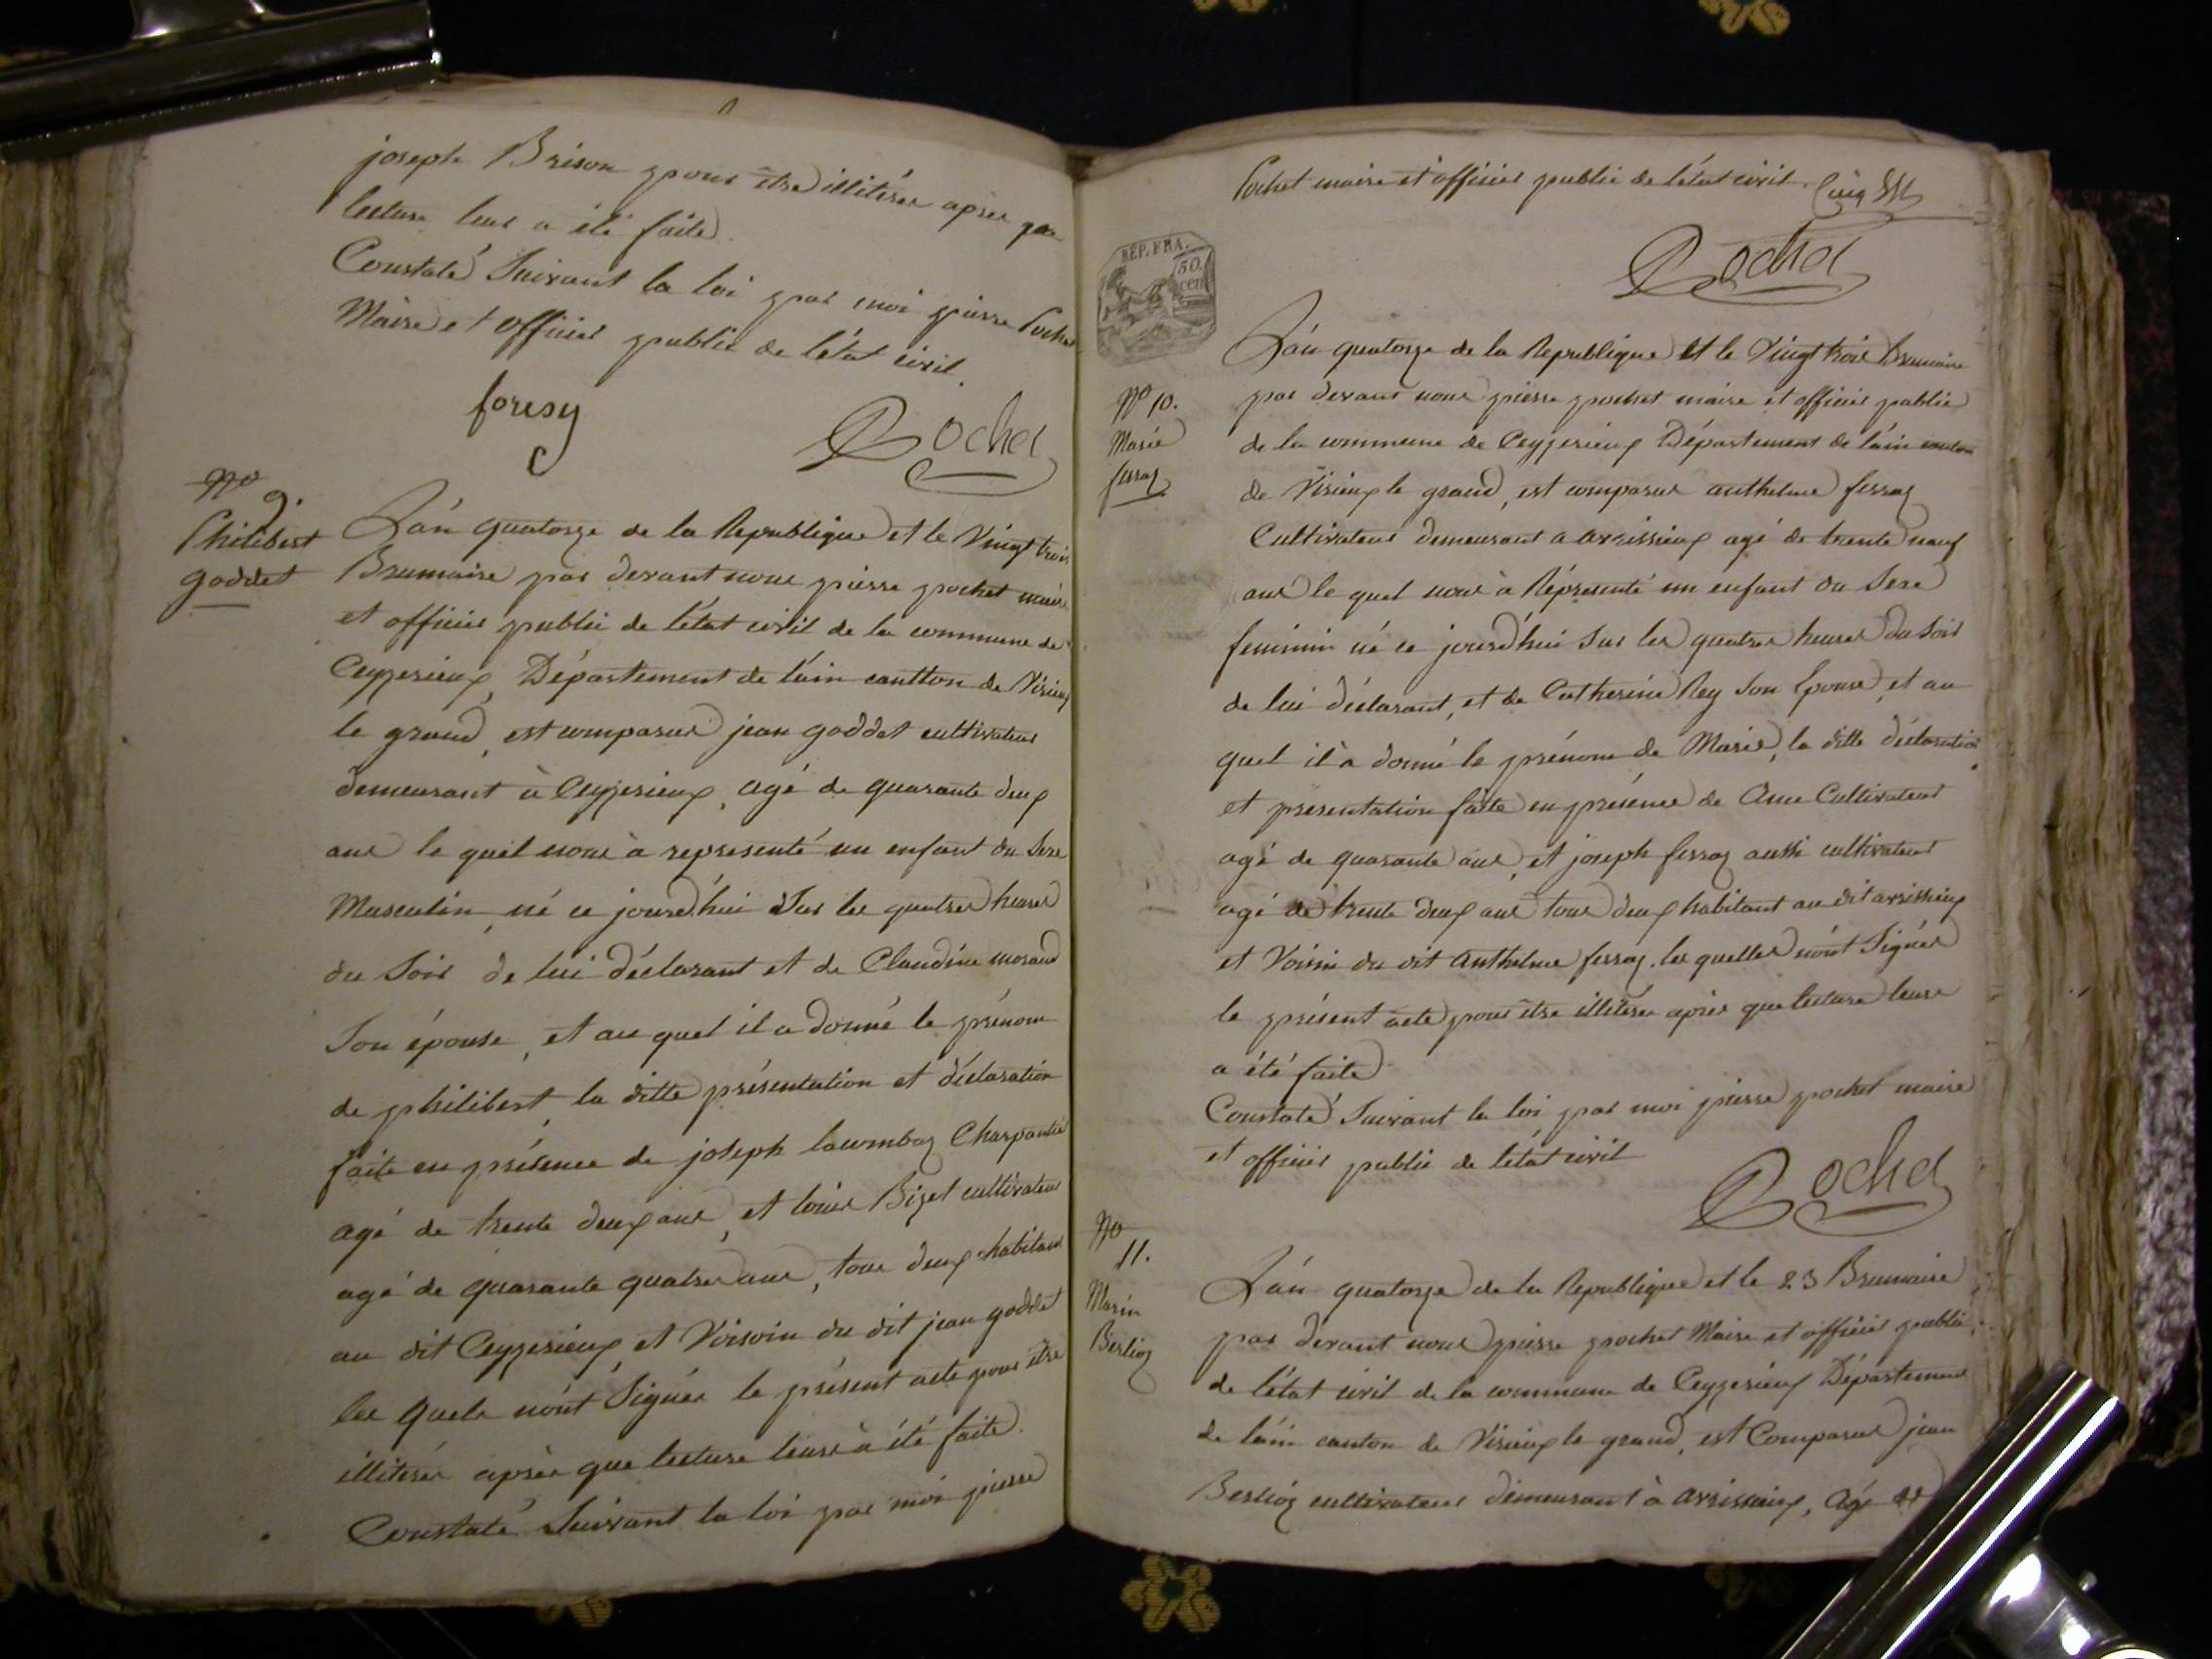 joseph Brison pour être illitérés après que
lecture leur a été faite.
Constaté Suivant la loi par moi pierre Pochet
Maire et officier public de l'état civil.
foresy
Pochet
No 9.
Philibert
goddet
L'án quatorze de la Republique et le Vingt trois
Brumaire par devant nous pierre pochet maire
et officier public de l'état civil de la commune de
Ceyzerieux, Département de l'ain cantton de Virieux
le grand, est comparus jean goddet cultivateur
demeurant à Ceyzerieux, agé de quarante deux
ans le quel nous à representé un enfant du Sexe
Masculin, né ce jourd'hui Sur les quatres heures
du Soir de lui déclarant et de Claudine morand
Son épouse, et au quel il a donné le prénom
de philibert, la ditte présentation et déclaration
faite en présence de joseph lacombaz Charpantié
agé de trente deux ans, et louis Bizet cultivateur
agé de quarante quatres ans, tous deux habitans
au dit Ceyzerieux et Voisoin du dit jean goddet
les quels n'ont Signés le présent acte pour être
illitérés après que lecture leurs à été faite.
Constaté Suivant la loi par moi pierre
Pochet maire et officier public de l'état civil.
Pochet
REP. FRA.
50.
cen
L'án quatorze de la Republique et le Vingt trois brumaire
No 10.
Marie
ferraz
par devant nous pierre pochet maire et officier public
de la commune de Ceyzerieux Département de l'ain canton
de Virieux le grand, est comparus anthelme ferraz
Cultivateur demeurant a avrissieux agé de trente neuf
ans le quel nous à Réprésenté un enfant du Sexe
feminin né ce jourd'hui Sur les quatres heures du Soir
de lui déclarant, et de Catherine Rey Son Epouse, et au
quel il à donné le prénom de Marie, la ditte déclaration
et presentation faite en présence de Cultivateur
agé de quarante ans, et joseph ferraz aussi cultivateur
agé de trente deux ans tous deux habitant au dit avrissieux
et Voisin du dit Anthelme ferraz. les quelles n'ont Signés
le présent acte pour être illitérés après que lecture leurs
a été faite
Constaté Suivant la loi par moi pierre pochet maire
et officier public de l'état civil
Pochet
No
11.
Marin
Berlioz
L'án quatorze de la Republique et le 23 Brumaire
par devant nous pierre pochet Maire et officier public
de l'état civil de la commune de Ceyzerieux Département
de l'ain canton de Virieux le grand, est Comparus jean
Berlioz cultivateur demeurant à avrissieux, Agé de